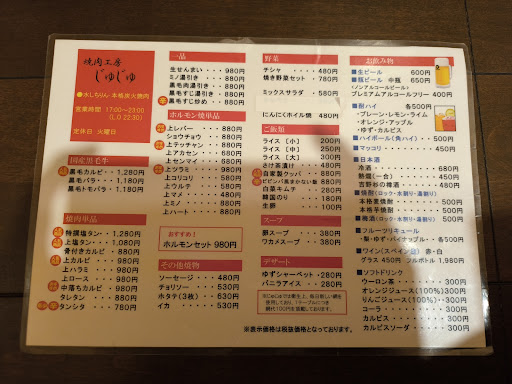 焼肉工房
じゅじゅ
●水しちりん 本格炭火焼肉
営業時間 17:00~23:00
(L.O 22:30)
定休日 火曜日
国産黒毛牛
黒毛カルビ・・1,280円
黒毛バラ・・・1,180円
黒毛トモバラ・1,180円
焼肉単品
特撰塩タン・・1,280円
上塩タン・・・1,080円
骨付きカルビ・・980円
上カルビ・・・・980円
上ハラミ・・・・980円
上ロース・・・・980円
中落ちカルビ・・980円
タレタン・・・・880円
タンシタ・・・・780円
一品
生せんまい・・・980円
ミノ湯引き・・・880円
黒毛肉湯引き・・880円
黒毛すじ湯引き・880円
黒毛すじ炒め・・880円
ホルモン焼単品
上レバー・・・・880円
ショウチョウ・・880円
上テッチャン・・880円
上アカセン・・・880円
上センマイ・・・880円
上ツラミ・・・・980円
上コリコリ・・・580円
上ウルテ・・・・580円
上マメ・・・・・480円
上ミノ・・・・・880円
上ハート・・・・880円
おすすめ!
ホルモンセット 980円
その他焼物
ソーセージ・・・480円
チョリソー・・・580円
ホタテ(3枚)・・580円
イカ・・・・・・580円
野菜
チシャ・・・・・480円
焼き野菜セット・780円
ミックスサラダ・・580円
にんにくホイル焼 480円
ご飯類
ライス(小)・・・200円
ライス(中)・・・250円
ライス(大)・・・300円
だけ茶漬け・・・480円
自家製クッパ・・880円
白菜キムチ・・・380円
韓国のり・・・・180円
生卵・・・・・・100円
スープ
卵スープ・・・・380円
ワカメスープ・・380円
デザート
ゆずシャーベット・280円
バニラアイス・・280円
お飲み物
■生ビール・・・・600円
■瓶ビール 中瓶・・650円
(ノンアルコールビール)
プレミアムアルコールフリー 400円
■酎ハイ・・・・・各500円
・プレーン・レモン・ライム
・オレンジ・アップル
・ゆず・カルピス
■ハイボール(角ハイ)・・500円
■マッコリ・・・・各500円
■日本酒
冷酒・・・・・・680円
熱燗(一合)・・・480円
吉野杉の樽酒・・680円
■焼酎(ロック・水割り・湯割り)
本格麦焼酎・・・500円
本格芋焼酎・・・500円
■梅酒(ロック・水割り・湯割り)
■フルーツリキュール
・梨・ゆず・パイナップル・各500円
■ワイン(スペイン産)赤・白
グラス 450円 フルボトル 1,980円
■ソフトドリンク
ウーロン茶・・・300円
オレンジジュース(100%)300円
りんごジュース(100%)300円
コーラ・・・・・300円
カルピス・・・・300円
カルピスソーダ・300円
※表示価格は税抜価格となっております。